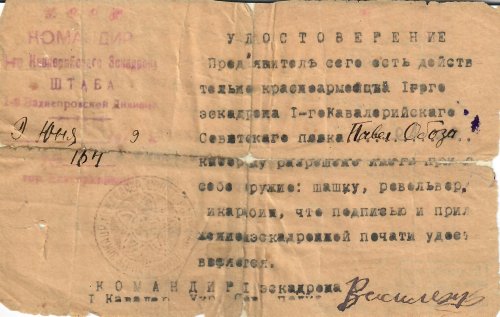 КОМАНДИР
1-го Кавалерійского Эскадрона
ШТАБА
Заднепровской Дивизии
9 Юня 9
164
УДОСТОВЕРЕНИЕ
Пред'явитель сего есть действ
тельно красноармеецъ 1-го
эскадрона I-го Кавалерийскаго
Советскаго полка Павел
которому разрешено иметь при
себе оружие: шашку, револьвер,
и карабин, что подписью и прил
жением эскадронной печати удост
веряется.
КОМАНДИР I эскадрона
I Кавалер. Укр. Сов. полка